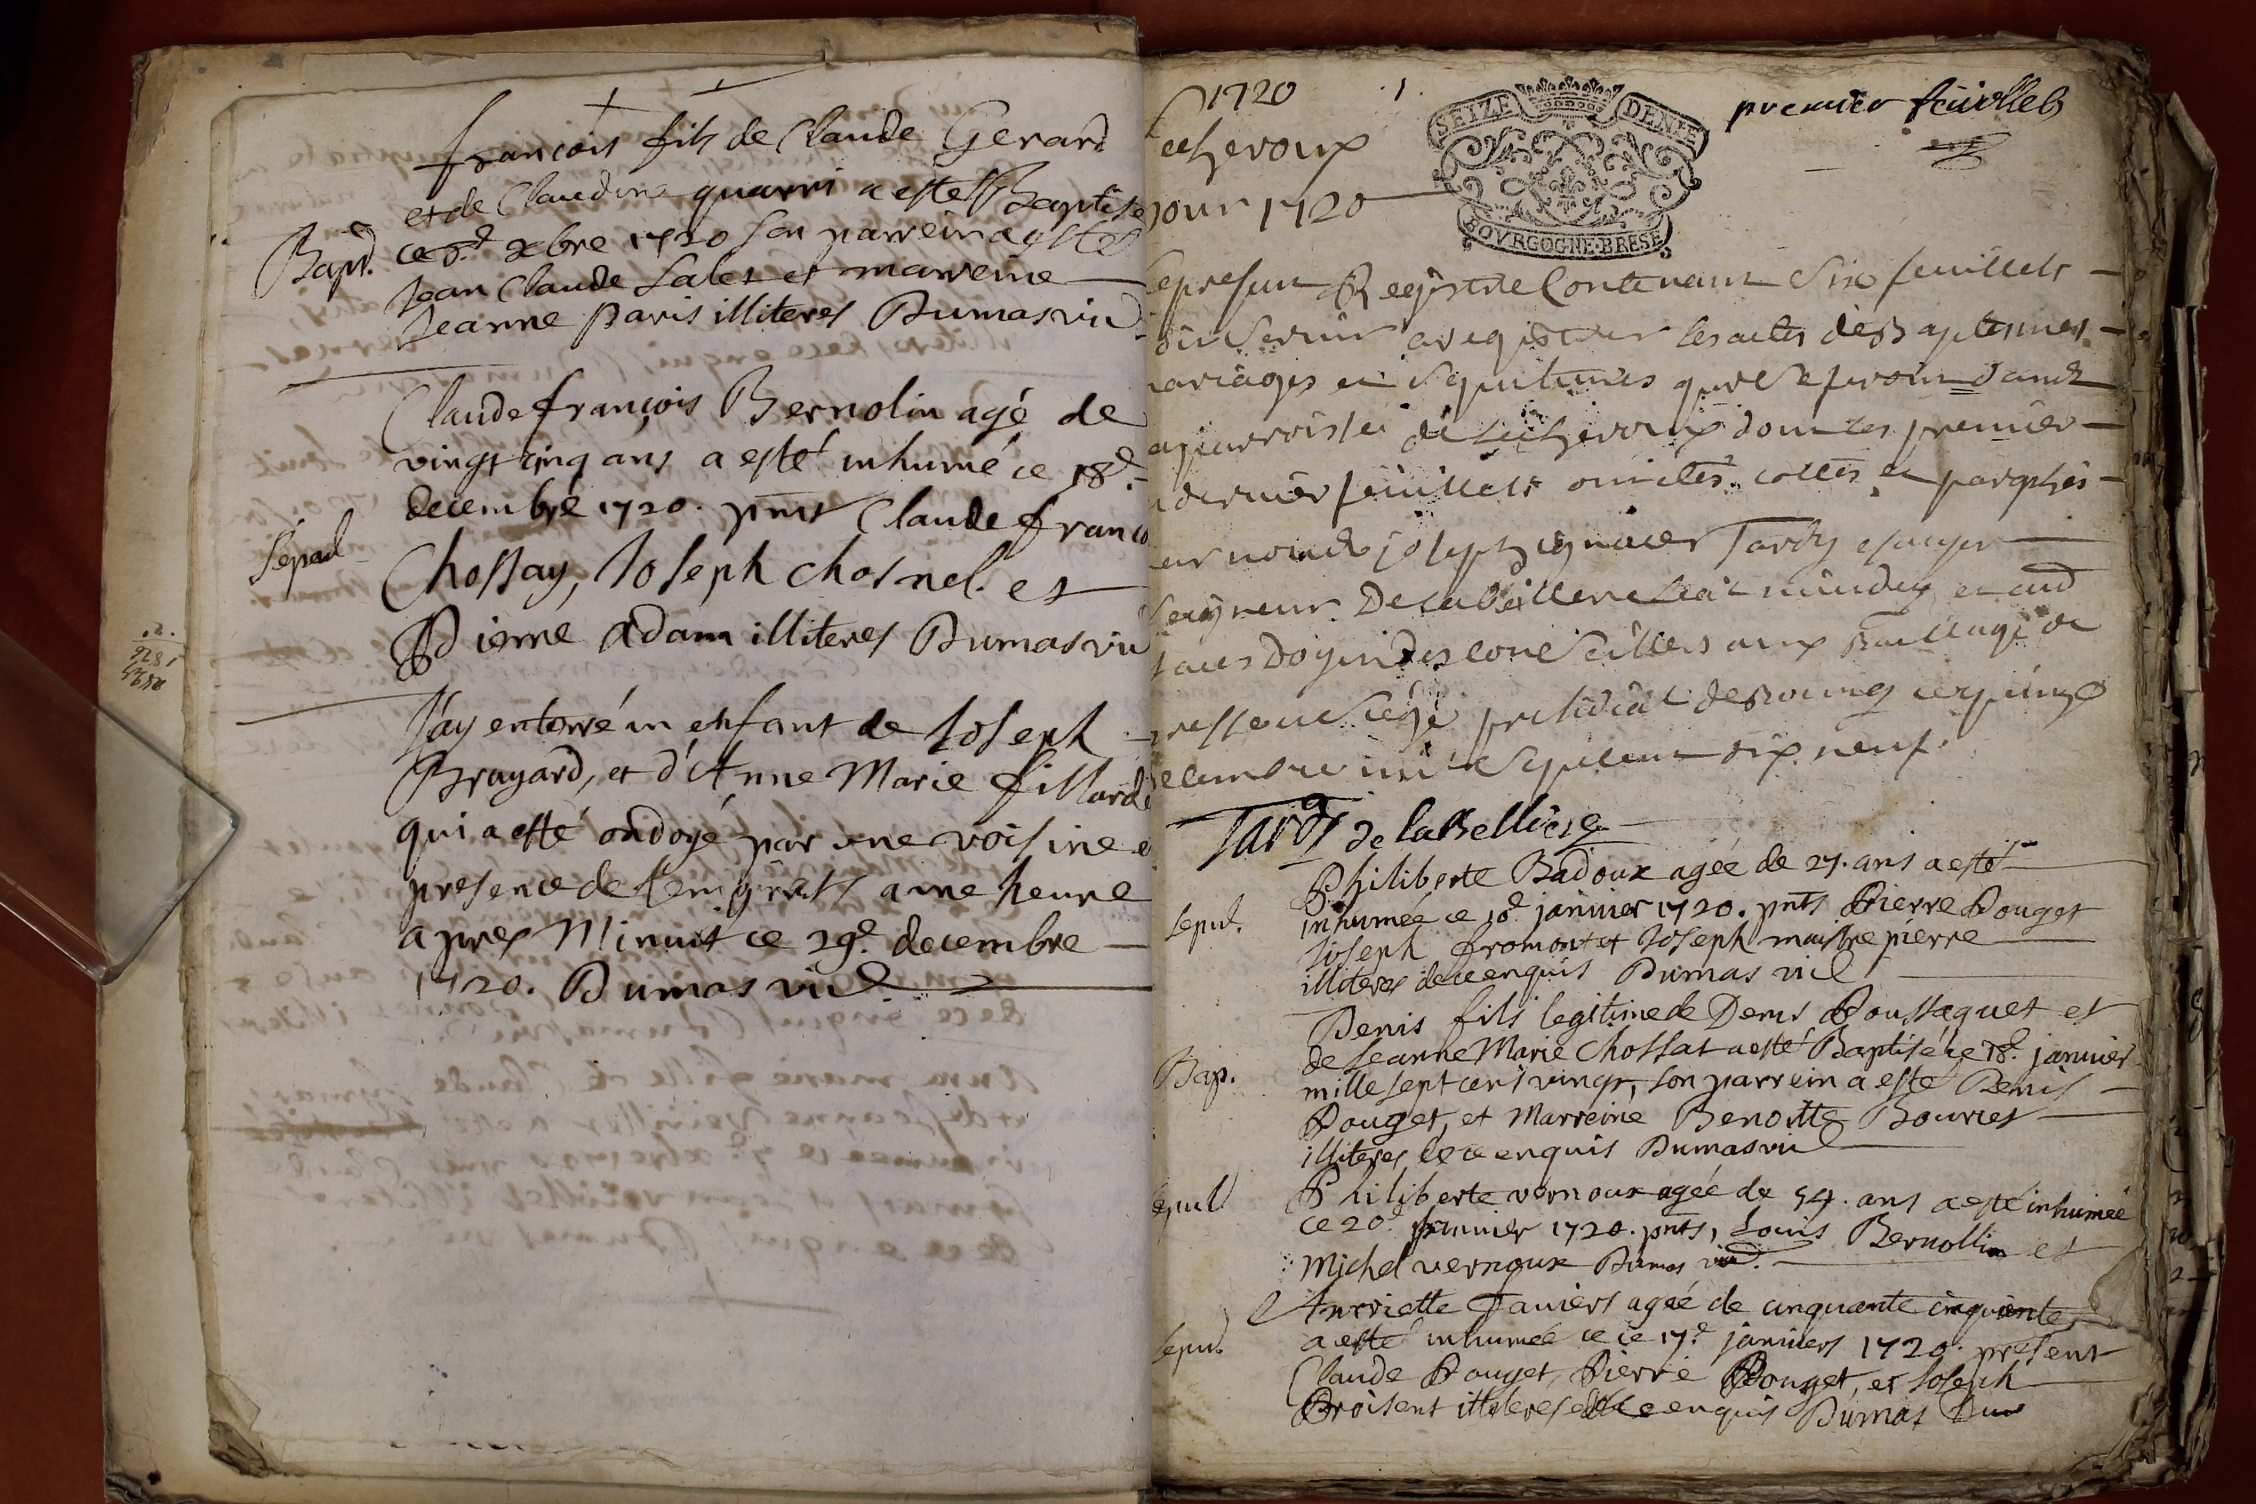 françois fils de Claude Gerard
et de Claudine quarri a esté Baptisé
Bapt. ce 8.e xbre 1720 son parrein a esté
Jean Claude Sales et marreine
Jeanne Paris illiteres Dumas vic
Claude françois Bernolin agé de
vingt cinq ans a esté inhumé ce 18.e
decembre 1720. pnts Claude franco
Sepul
Chossay, Joseph Chosnel. et
Pierre Adam illiteres Dumas vic
J'ay enterré un enfant de Joseph
Brayard, et d'Anne Marie fillard
qui a esté ondoyé par une voisine e
presence de a une heure
apres Minuit ce 29.e decembre
1720. Dumas vic.
1720 1. premier feuillet
SEIZE DENIE
BOVRGOGNE·BRESE
Lescheroux
pour 1720
Le present Registre Contenant Six feuillets
servir a registrer les actes de Baptesmes
mariages et sepultures qui se feront dans
la parroisse de Lescheroux dont les premier
dernier feuillets ont estés cottés et paraphés
par nous Joseph ignace Tardy escuyer
Seigneur De la Belliere
doyen des conseillers aux Bailliage et
siege presidial de Bourg ce quinze
decembre mil sept cent dix neuf.
Tardy de la Belliere
Philiberte Badoux agée de 27. ans a esté
Sepul. inhumée ce 10.e janvier 1720. pnts Pierre Pouget
Joseph fromont et Joseph maistre pierre
illiteres de ce enquis Dumas vic
Denis fils legitime de Denis Poussaguet et
Bap. de Jeanne Marie Chossat a esté Baptisé ce 18.e janvier
mille sept cent vingt, son parrein a esté Denis
Pouget, et Marreine Benoitte Bouvret
illiteres de ce enquis Dumas vic
Sepul Philiberte vernoux agée de 54. ans a esté inhumée
ce 20.e janvier 1720. pnts, Louis Bernollin et
Michel vernoux Dumas vic.
Anriette faviers agée de cinquante
Sepul. a esté inhumée ce ce 17.e janviers 1720. present
Claude Pouget, Pierre Pouget, et Joseph
Broisent illiteres de ce enquis Dumas